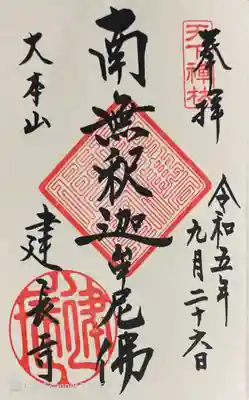 奉拝
天下禅林
令和五年
九月二十六日
南無釈迦牟尼佛
大本山
建長寺